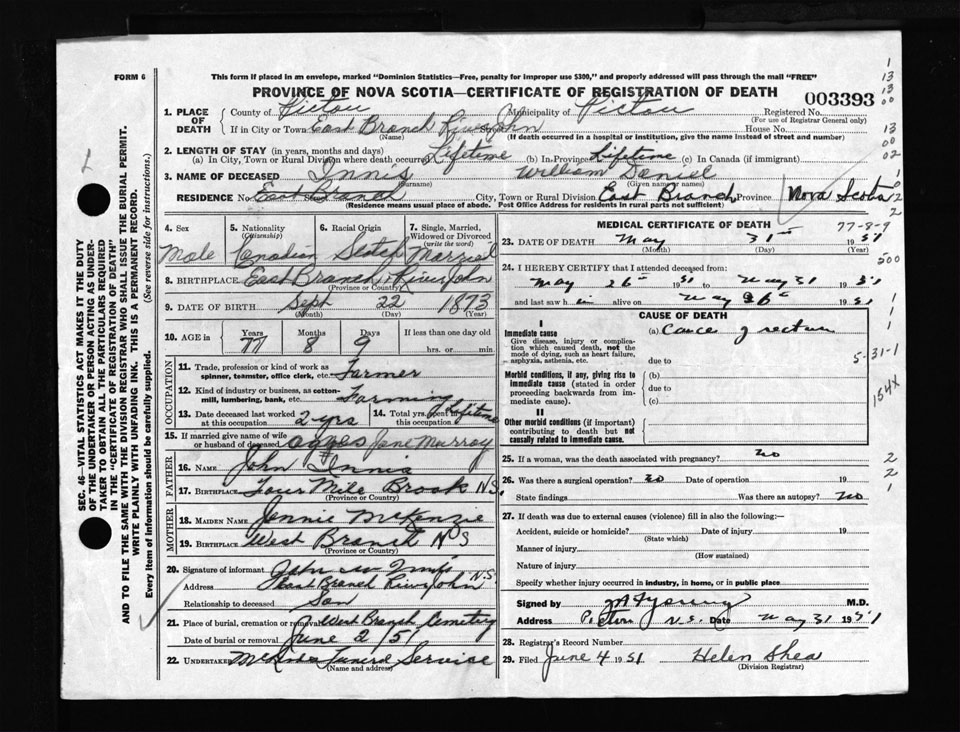 FORM 6
This form if placed in an envelope, marked "Dominion Statistics—Free, penalty for improper use $300," and properly addressed will pass through the mail "FREE"
PROVINCE OF NOVA SCOTIA—CERTIFICATE OF REGISTRATION OF DEATH
003393
1. PLACE OF DEATH
County of Pictou Municipality of Pictou Registered No.
(For use of Registrar General only)
If in City or Town East Branch River John Street House No.
(Name) (If death occurred in a hospital or institution, give the name instead of street and number)
2. LENGTH OF STAY (in years, months and days)
(a) In City, Town or Rural Division where death occurred Lifetime (b) In Province Lifetime (c) In Canada (if immigrant)
3. NAME OF DECEASED Innis William Daniel
(Surname) (Given name or names)
RESIDENCE No. East Branch City, Town or Rural Division East Branch Province Nova Scotia
(Residence means usual place of abode. Post Office Address for residents in rural parts not sufficient)
4. Sex Male
5. Nationality (Citizenship) Canadian
6. Racial Origin Scotch
7. Single, Married, Widowed or Divorced (write the word) Married
8. BIRTHPLACE East Branch River John
(Province or Country)
9. DATE OF BIRTH Sept 22 1873
(Month) (Day) (Year)
10. AGE in Years Months Days If less than one day old
77 8 9 hrs. or min.
OCCUPATION
11. Trade, profession or kind of work as spinner, teamster, office clerk, etc. Farmer
12. Kind of industry or business, as cotton-mill, lumbering, bank, etc. Farming
13. Date deceased last worked at this occupation 2 yrs
14. Total yrs. spent in this occupation Lifetime
15. If married give name of wife or husband of deceased Agnes Jane Murray
FATHER
16. NAME John Innis
17. BIRTHPLACE Four Mile Brook N.S.
(Province or Country)
MOTHER
18. MAIDEN NAME Jennie McKenzie
19. BIRTHPLACE West Branch N S
(Province or Country)
20. Signature of informant John W Innis
Address East Branch River John N.S.
Relationship to deceased Son
21. Place of burial, cremation or removal West Branch Cemetery
Date of burial or removal June 2/51
22. UNDERTAKER Funeral Service
(Name and address)
MEDICAL CERTIFICATE OF DEATH
77-8-9
23. DATE OF DEATH May 31st 1951
(Month) (Day)
24. I HEREBY CERTIFY that I attended deceased from:
May 26th 1951 to May 31 1951
and last saw him alive on May 26th 1951
CAUSE OF DEATH
I
Immediate cause
Give disease, injury or complication which caused death, not the mode of dying, such as heart failure, asphyxia, asthenia, etc.
(a) Cancer of rectum
due to
Morbid conditions, if any, giving rise to immediate cause (stated in order proceeding backwards from immediate cause).
(b)
due to
(c)
II
Other morbid conditions (if important) contributing to death but not causally related to immediate cause.
5-31-1
154X
25. If a woman, was the death associated with pregnancy? No
26. Was there a surgical operation? No Date of operation 19
State findings Was there an autopsy? No
27. If death was due to external causes (violence) fill in also the following:—
Accident, suicide or homicide? Date of injury 19
(State which)
Manner of injury
(How sustained)
Nature of injury
Specify whether injury occurred in industry, in home, or in public place
Signed by M.D.
Address Pictou N.S. Date May 31 1951
28. Registrar's Record Number
29. Filed June 4 1951 Helen Shea
(Division Registrar)
SEC. 46—VITAL STATISTICS ACT MAKES IT THE DUTY OF THE UNDERTAKER OR PERSON ACTING AS UNDERTAKER TO OBTAIN ALL THE PARTICULARS REQUIRED IN THE "CERTIFICATE OF REGISTRATION OF DEATH"
AND TO FILE THE SAME WITH THE DIVISION REGISTRAR WHO SHALL ISSUE THE BURIAL PERMIT.
WRITE PLAINLY WITH UNFADING INK. THIS IS A PERMANENT RECORD.
Every item of information should be carefully supplied. (See reverse side for instructions.)